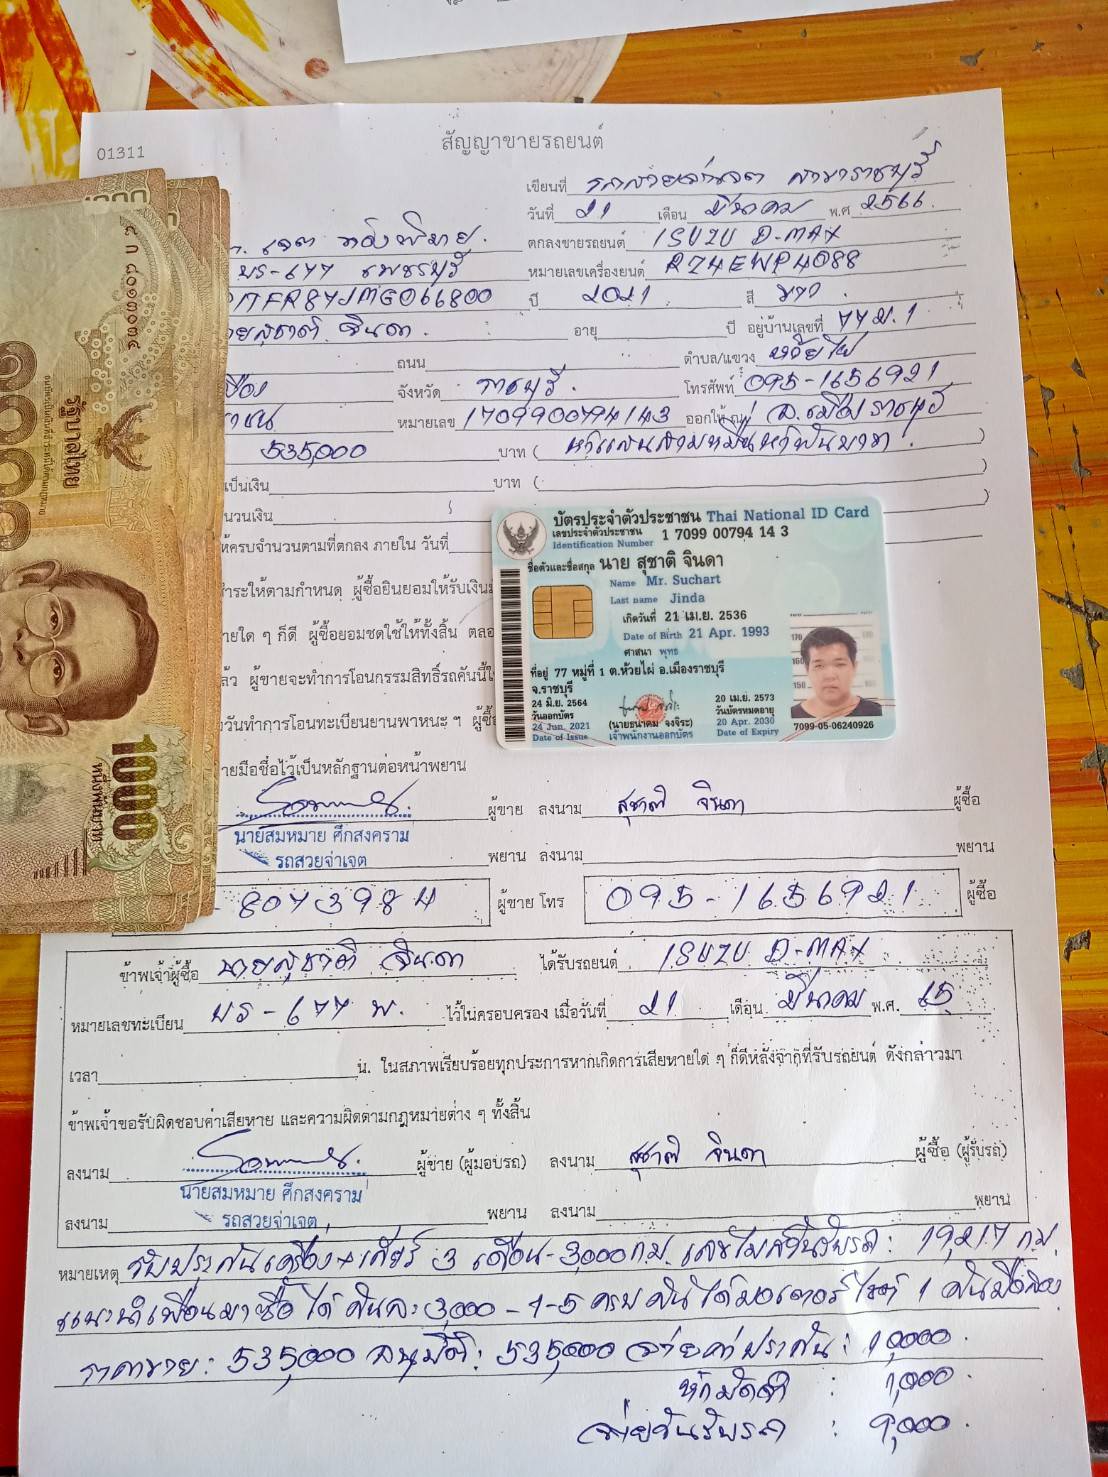 สัญญาขายรถยนต์
01311
เขียนที่ รถสวยจ่าเจต สาขาราชบุรี
วันที่ 21 เดือน มีนาคม พ.ศ 2566
ตกลงขายรถยนต์ ISUZU D-MAX
บร-677 เพชรบุรี หมายเลขเครื่องยนต์ RZ4EWP4088
ปี 2021 สี ขาว
ายสุชาติ จินดา. อายุ ปี อยู่บ้านเลขที่ 77 ม.1
ถนน ตำบล/แขวง ห้วยไผ่
จังหวัด ราชบุรี. โทรศัพท์ 095-1656921
หมายเลข 1709900794143 ออกให้ ณ อ.เมืองราชบุรี
535,000 บาท ( ห้าแสนสามหมื่นห้าพันบาท. )
เป็นเงิน บาท ( )
นวนเงิน )
ห้ครบจำนวนตามที่ตกลง ภายใน วันที่
ำระให้ตามกำหนด ผู้ซื้อยินยอมให้รับเงิน
ายใด ๆ ก็ดี ผู้ซื้อยอมชดใช้ให้ทั้งสิ้น ตลอ
ล้ว ผู้ขายจะทำการโอนกรรมสิทธิ์รถคันนี้
วันทำการโอนทะเบียนยานพาหนะ ฯ ผู้ซื้
ายมือชื่อไว้เป็นหลักฐานต่อหน้าพยาน
บัตรประจำตัวประชาชน Thai National ID Card
เลขประจำตัวประชาชน 1 7099 00794 14 3
Identification Number
ชื่อตัวและชื่อสกุล นาย สุชาติ จินดา
Name Mr. Suchart
Last name Jinda
เกิดวันที่ 21 เม.ย. 2536
Date of Birth 21 Apr. 1993
ศาสนา พุทธ
ที่อยู่ 77 หมู่ที่ 1 ต.ห้วยไผ่ อ.เมืองราชบุรี
จ.ราชบุรี
24 มิ.ย. 2564
วันออกบัตร
24 Jun. 2021
Date of Issue
(นายธนาคม จงจิระ)
เจ้าพนักงานออกบัตร
20 เม.ย. 2573
วันบัตรหมดอายุ
20 Apr. 2030
Date of Expiry
170
160
150
7099-05-06240926
รัฐบาลไทย
1000
หนึ่งพันบาท
ผู้ขาย ลงนาม สุชาติ จินดา ผู้ซื้อ
นายสมหมาย ศึกสงคราม
รถสวยจ่าเจต พยาน ลงนาม พยาน
8073984 ผู้ขาย โทร 095-1656921 ผู้ซื้อ
ข้าพเจ้าผู้ซื้อ นายสุชาติ จินดา ได้รับรถยนต์ ISUZU D-MAX
หมายเลขทะเบียน บร-677 พ. ไว้ในครอบครอง เมื่อวันที่ 21 เดือน มีนาคม พ.ศ. 65
เวลา น. ในสภาพเรียบร้อยทุกประการหากเกิดการเสียหายใด ๆ ก็ดีหลังจากที่รับรถยนต์ ดังกล่าวมา
ข้าพเจ้าขอรับผิดชอบค่าเสียหาย และความผิดตามกฎหมายต่าง ๆ ทั้งสิ้น
ลงนาม ผู้ขาย (ผู้มอบรถ) ลงนาม สุชาติ จินดา ผู้ซื้อ (ผู้รับรถ)
นายสมหมาย ศึกสงคราม
ลงนาม รถสวยจ่าเจต พยาน ลงนาม พยาน
หมายเหตุ รับประกันเครื่อง+เกียร์ 3 เดือน-3,000กม. เลขไมล์วันรับรถ: 19,217 กม.
แนะนำเพื่อนมาซื้อ ได้ คันละ 3,000 -1-5 ครบ คัน ได้มอเตอร์ไซค์ 1 คัน
ราคาขาย: 535,000 อนุมัติ: 535,000 จ่ายค่าประกัน: 10,000.
หักมัดจำ : 1,000.
จ่ายวันรับรถ : 9,000.